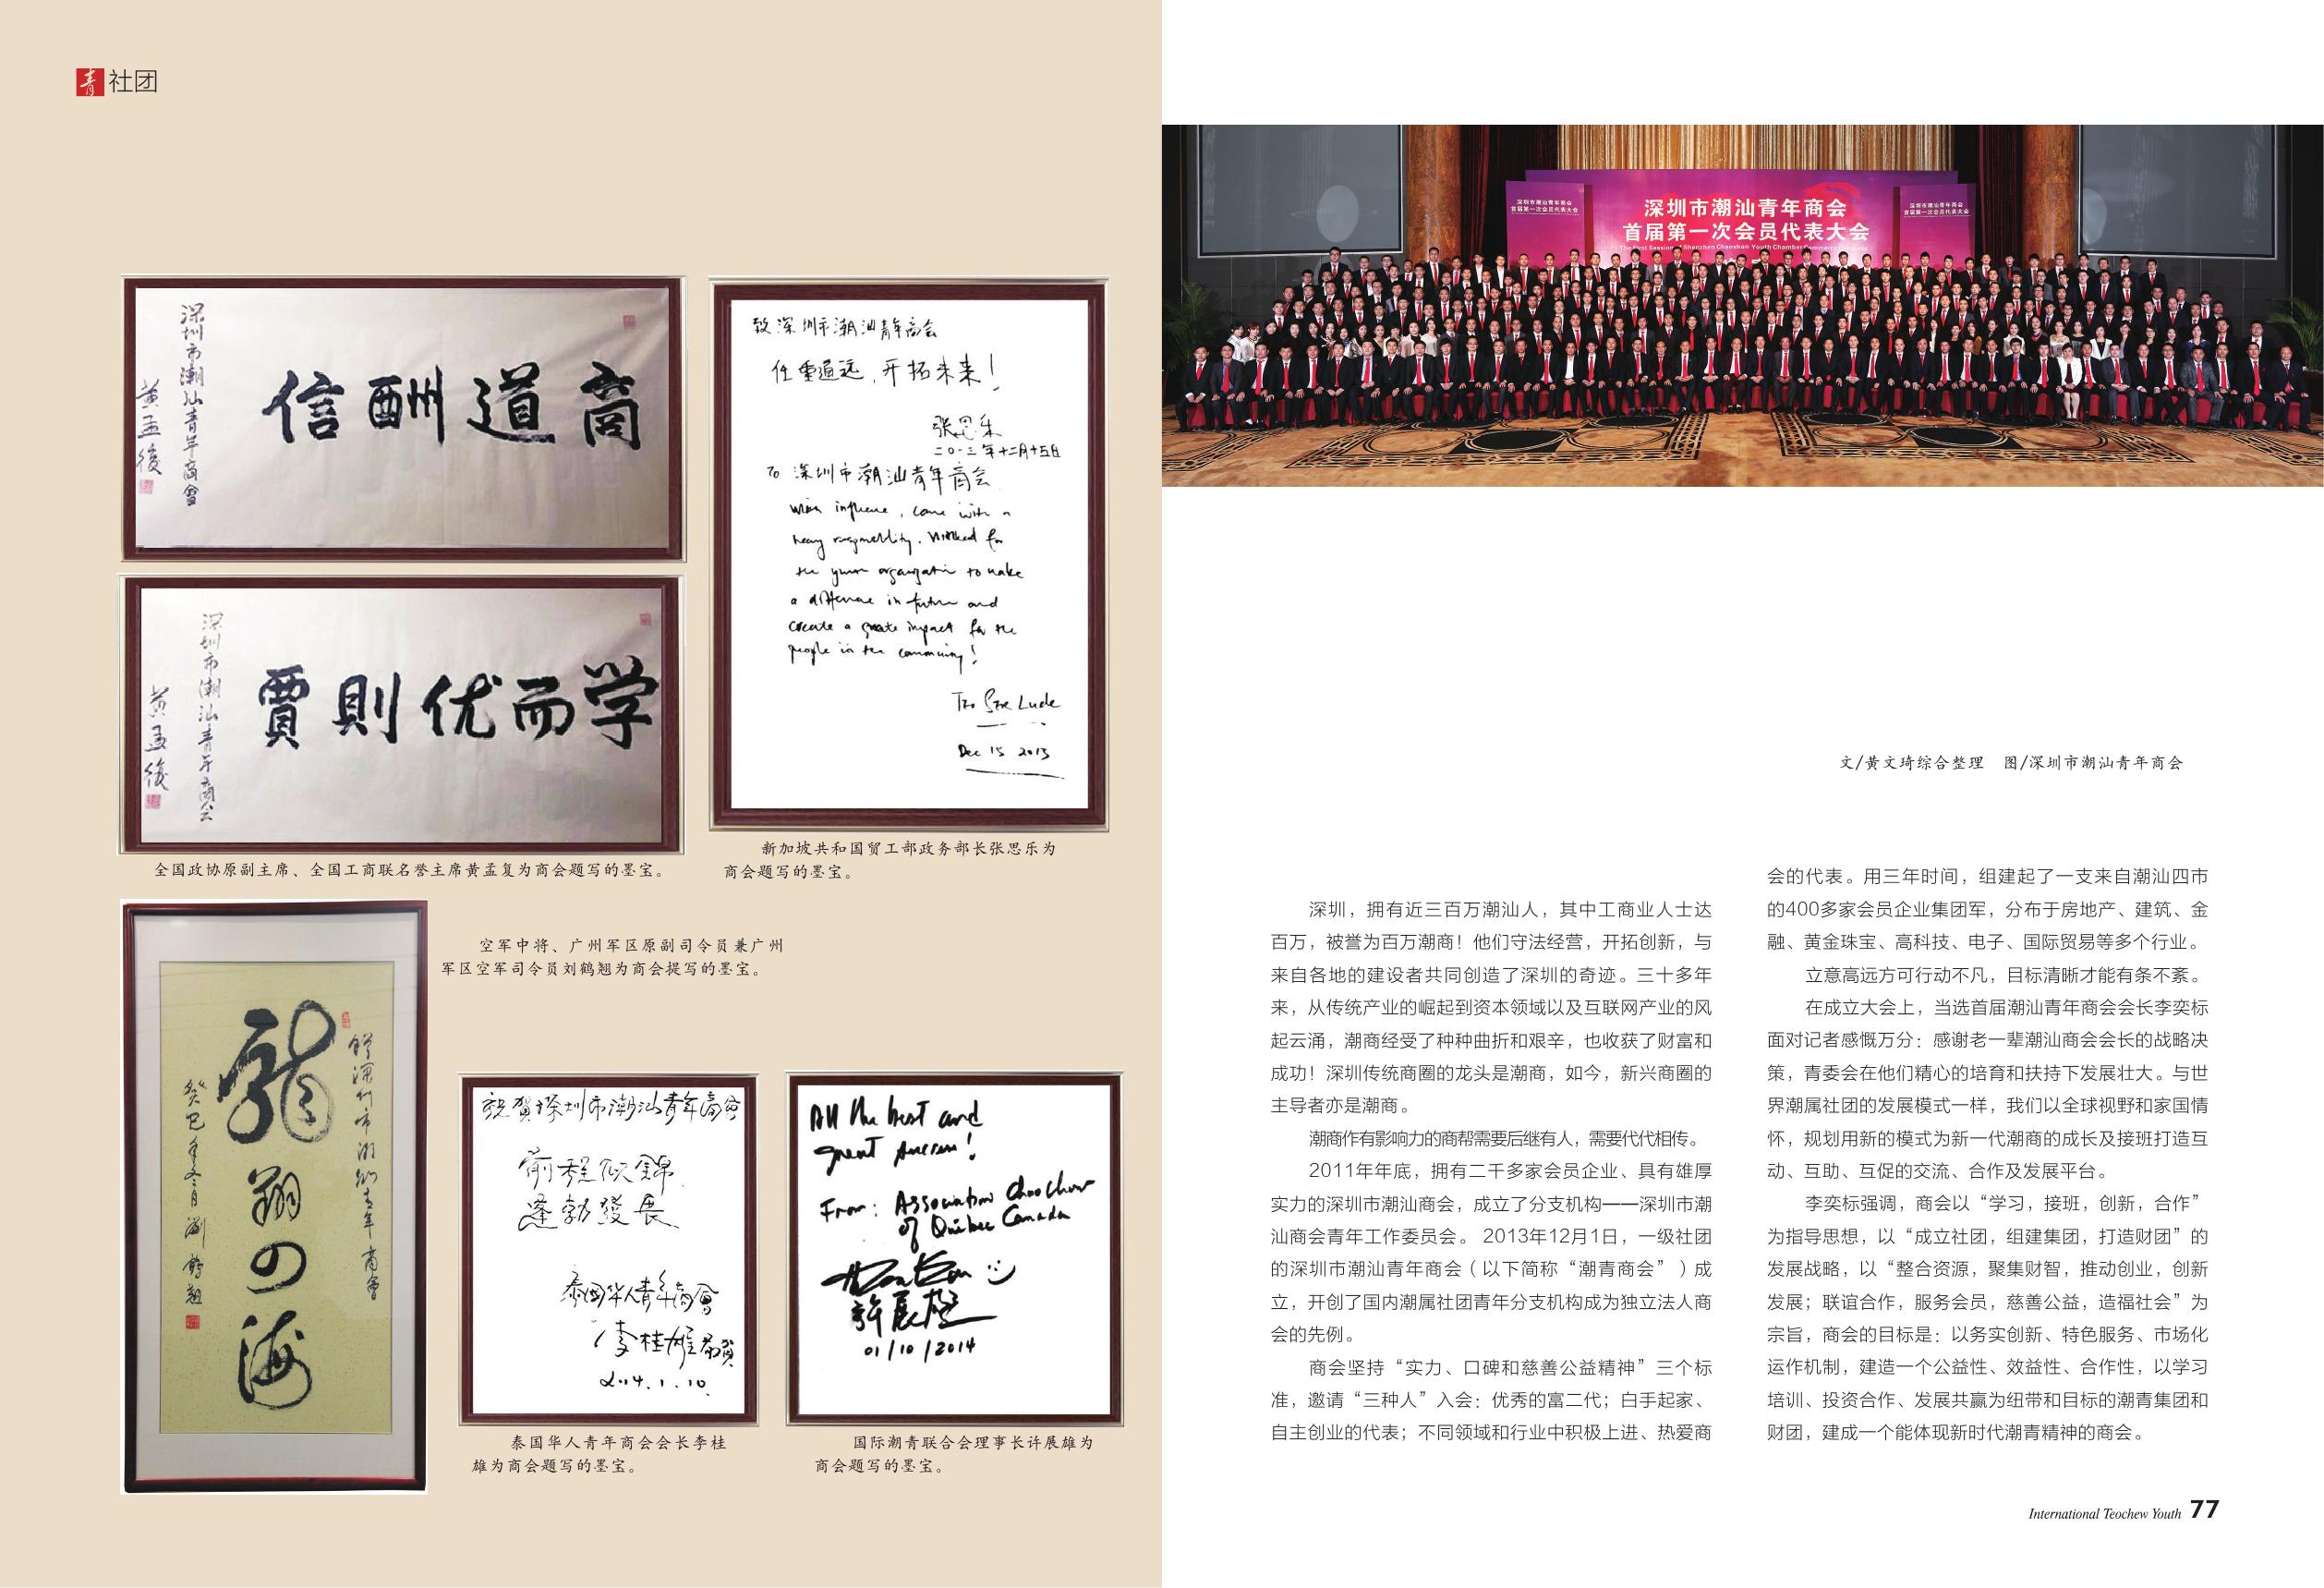 青社团
深圳市潮汕青年商會
商道酬信
黄孟復
深圳市潮汕青年商会
学而优則賈
黄孟復
全国政协原副主席、全国工商联名誉主席黄孟复为商会题写的墨宝。
致深圳市潮汕青年商会
任重道远,开拓未来!
张思乐
二〇一三年十二月十五日
To 深圳市潮汕青年商会
With influence, come with a
heavy responsibility.
the young organization to make
a difference in future and
create a great impact for the
people in the community!
Teo Ser Luck
Dec 15 2013
新加坡共和国贸工部政务部长张思乐为
商会题写的墨宝。
空军中将、广州军区原副司令员兼广州
军区空军司令员刘鹤翘为商会提写的墨宝。
深圳市潮汕青年商會
龍翔四海
癸巳年冬月
祝贺深圳市潮汕青年商会
前程似錦
蓬勃發展
泰国华人青年商會
李桂雄恭賀
2014.1.10.
泰国华人青年商会会长李桂
雄为商会题写的墨宝。
All the best and
great success!
From: Association Chaochow
of Quebec Canada
許展雄
01/10/2014
国际潮青联合会理事长许展雄为
商会题写的墨宝。
深圳市潮汕青年商会
首届第一次会员代表大会
深圳市潮汕青年商会
首届第一次会员代表大会
The First Session of Shenzhen Chaoshan Youth Chamber
深圳市潮汕青年商会
首届第一次会员代表大会
文/黄文琦综合整理　图/深圳市潮汕青年商会
深圳，拥有近三百万潮汕人，其中工商业人士达
百万，被誉为百万潮商！他们守法经营，开拓创新，与
来自各地的建设者共同创造了深圳的奇迹。三十多年
来，从传统产业的崛起到资本领域以及互联网产业的风
起云涌，潮商经受了种种曲折和艰辛，也收获了财富和
成功！深圳传统商圈的龙头是潮商，如今，新兴商圈的
主导者亦是潮商。
潮商作有影响力的商帮需要后继有人，需要代代相传。
2011年年底，拥有二千多家会员企业、具有雄厚
实力的深圳市潮汕商会，成立了分支机构——深圳市潮
汕商会青年工作委员会。 2013年12月1日，一级社团
的深圳市潮汕青年商会（以下简称“潮青商会”）成
立，开创了国内潮属社团青年分支机构成为独立法人商
会的先例。
商会坚持“实力、口碑和慈善公益精神”三个标
准，邀请“三种人”入会：优秀的富二代；白手起家、
自主创业的代表；不同领域和行业中积极上进、热爱商
会的代表。用三年时间，组建起了一支来自潮汕四市
的400多家会员企业集团军，分布于房地产、建筑、金
融、黄金珠宝、高科技、电子、国际贸易等多个行业。
立意高远方可行动不凡，目标清晰才能有条不紊。
在成立大会上，当选首届潮汕青年商会会长李奕标
面对记者感慨万分：感谢老一辈潮汕商会会长的战略决
策，青委会在他们精心的培育和扶持下发展壮大。与世
界潮属社团的发展模式一样，我们以全球视野和家国情
怀，规划用新的模式为新一代潮商的成长及接班打造互
动、互助、互促的交流、合作及发展平台。
李奕标强调，商会以“学习，接班，创新，合作”
为指导思想，以“成立社团，组建集团，打造财团”的
发展战略，以“整合资源，聚集财智，推动创业，创新
发展；联谊合作，服务会员，慈善公益，造福社会”为
宗旨，商会的目标是：以务实创新、特色服务、市场化
运作机制，建造一个公益性、效益性、合作性，以学习
培训、投资合作、发展共赢为纽带和目标的潮青集团和
财团，建成一个能体现新时代潮青精神的商会。
International Teochew Youth 77